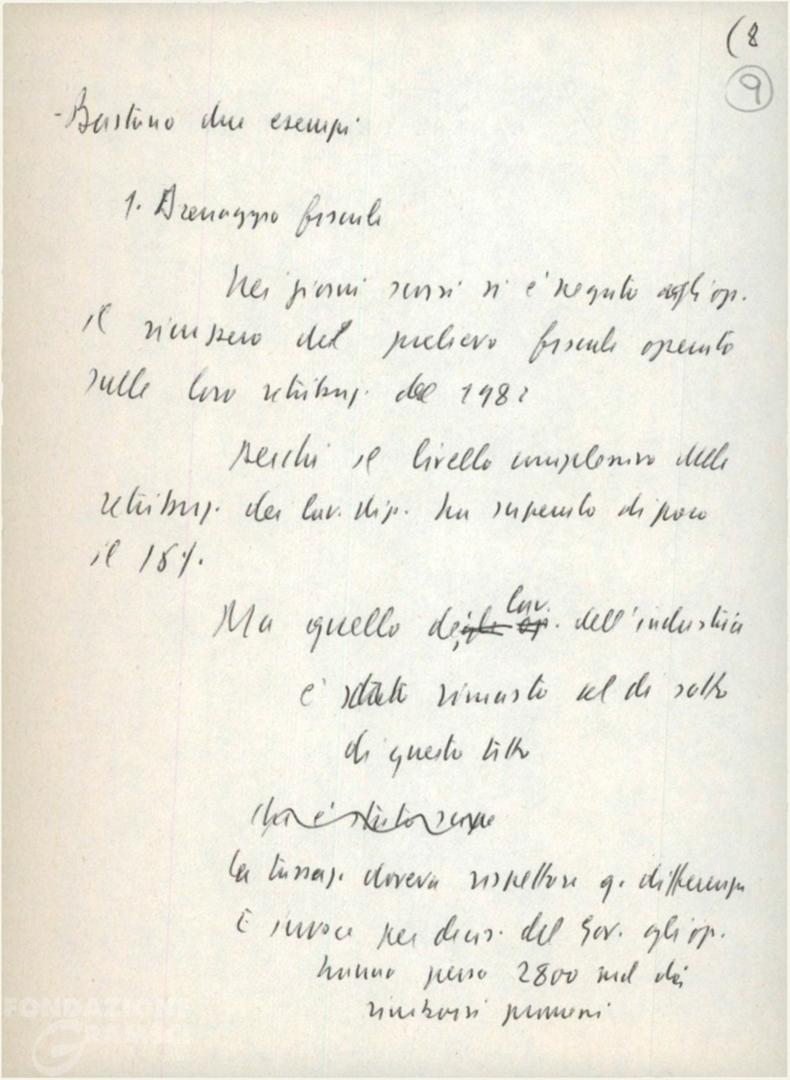 (8
9
- Bastano due esempi
1. Drenaggio fiscale
Nei giorni scorsi si è negato agli op.
il rimborso del prelievo fiscale operato
sulle loro retribuz. del 1982
Perché il livello complessivo delle
retribuz. dei lav. dip. ha superato di poco
il 16%.
lav.
Ma quello degli op. dell'industria
è stato rimasto al di sotto
di questo tetto
La tassaz. doveva rispettare q. differenza
E invece per decis. del Gov. gli op.
hanno perso 2800 mld dei
rimborsi promessi
FONDAZIONE
GRAMSCI